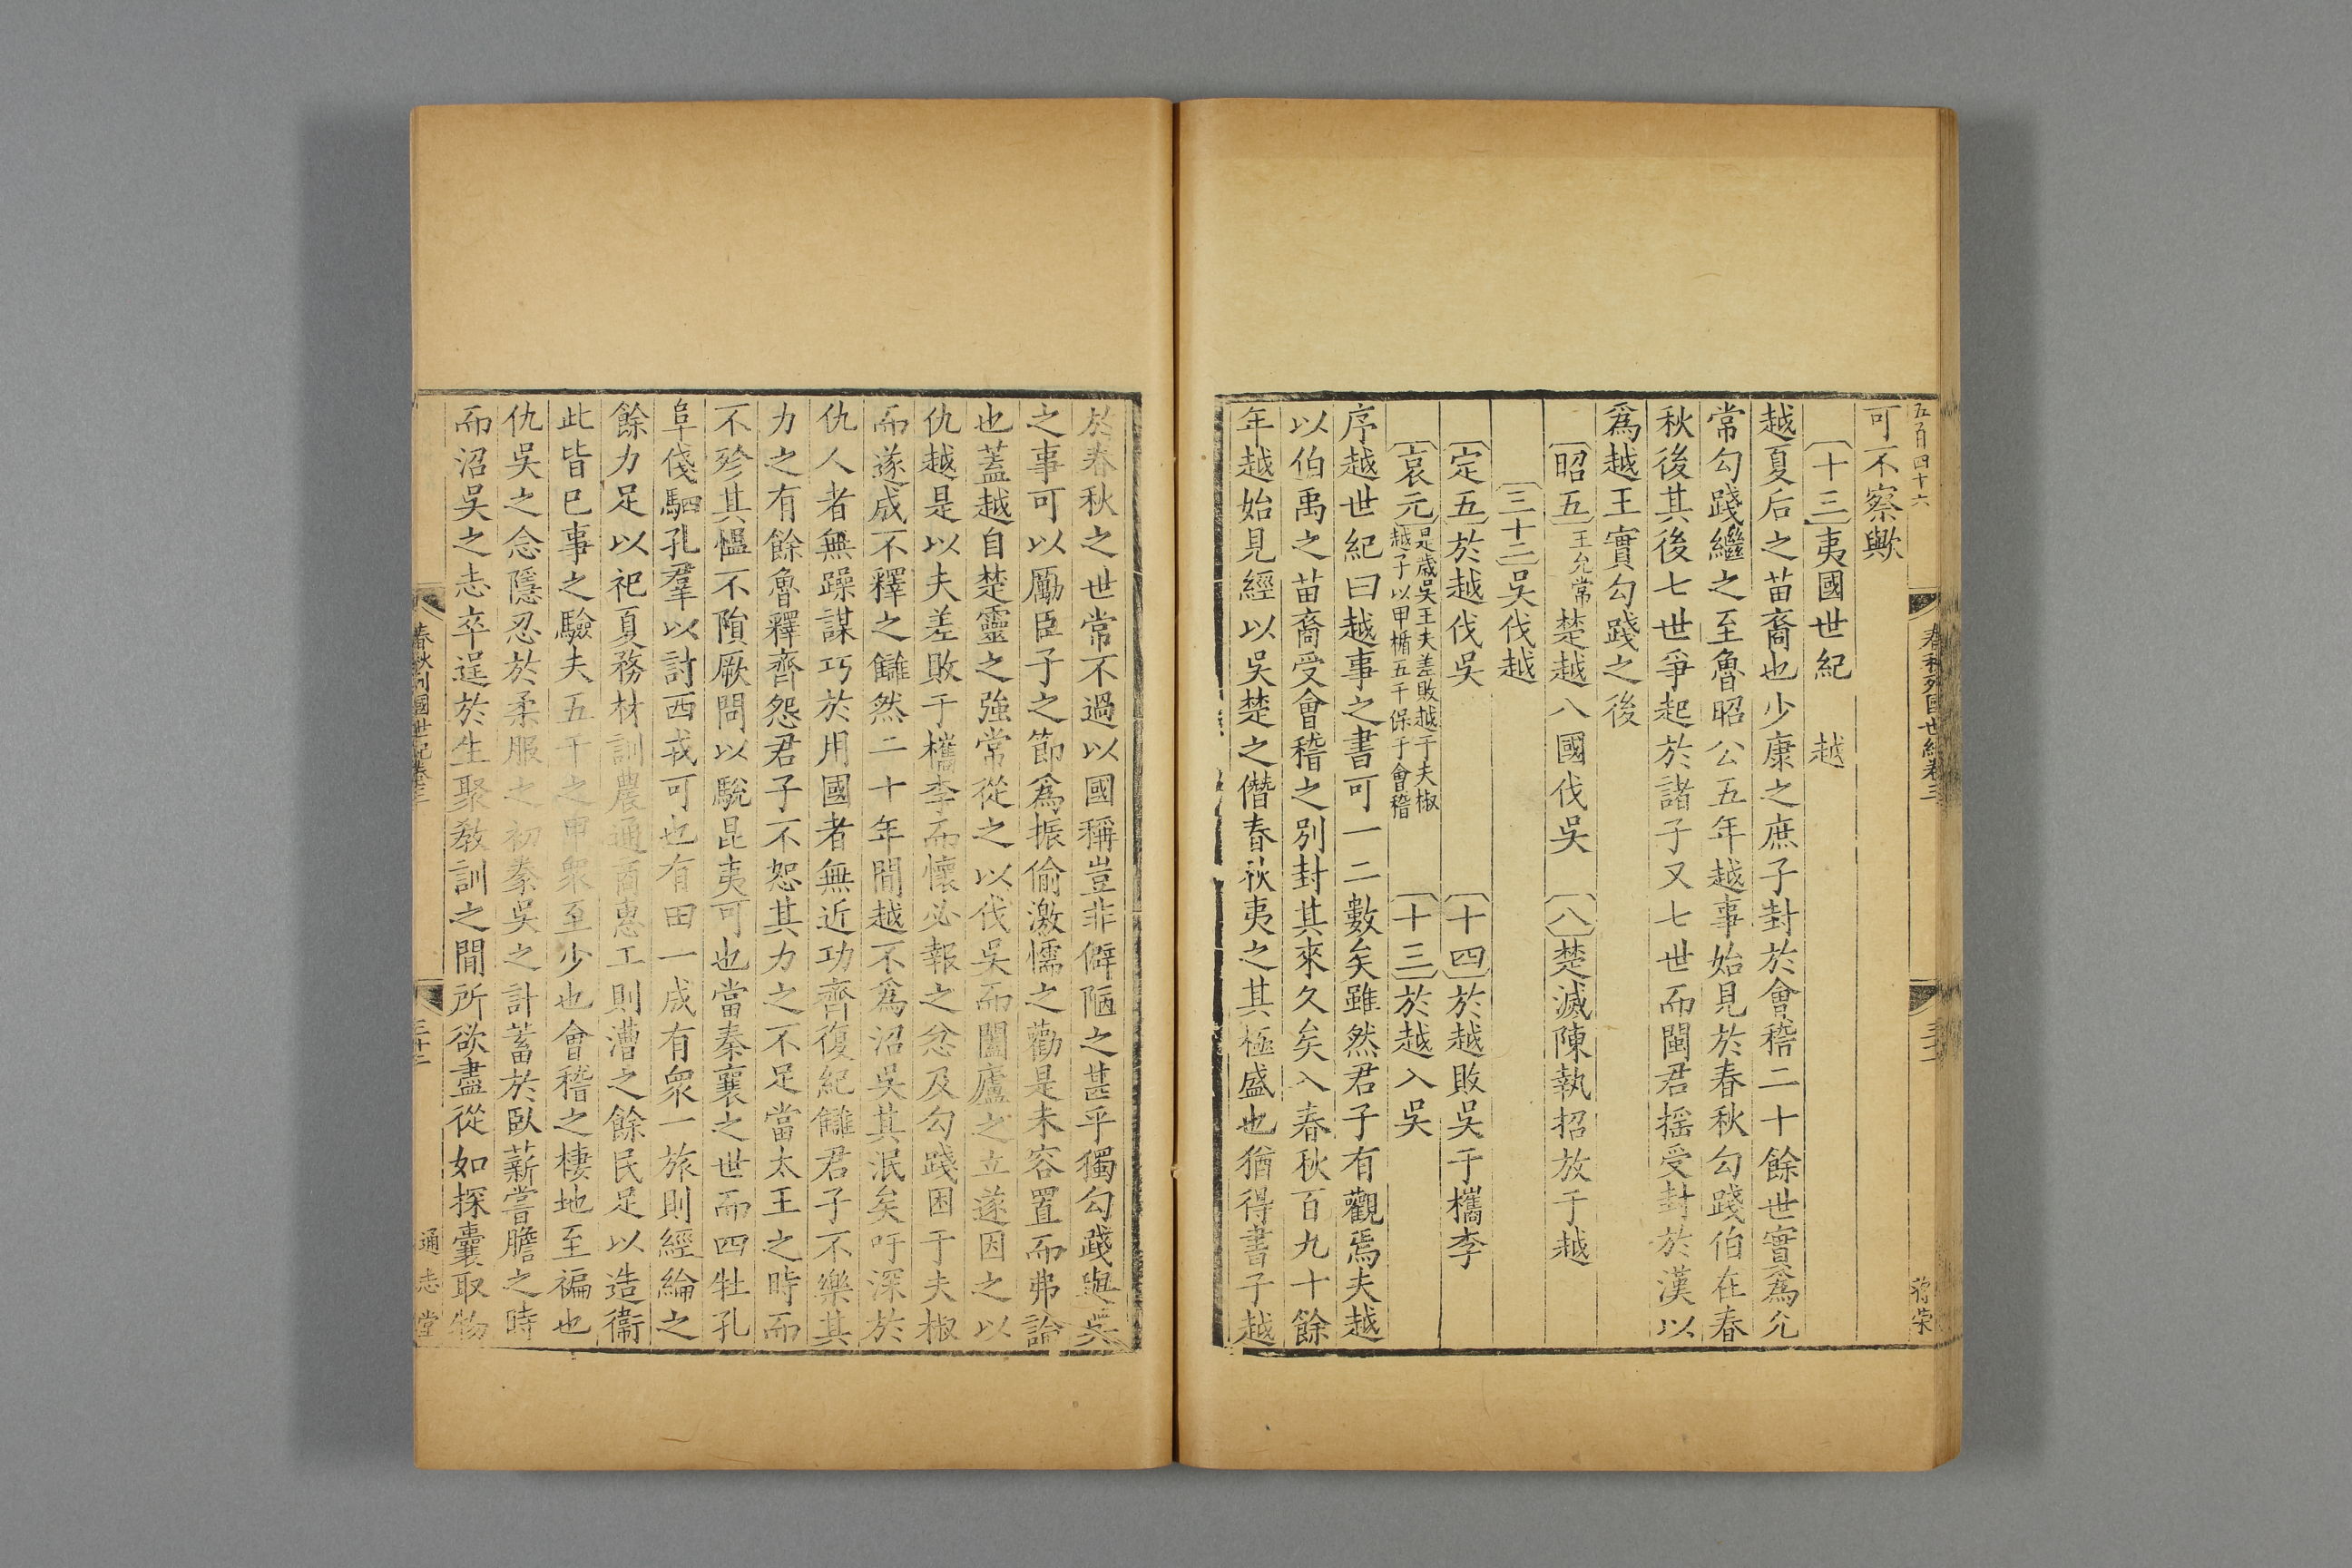 五百四十六
春秋列國世紀卷三
三十二
蔣榮
可不察歟
〔十三〕夷國世紀　越
越夏后之苗裔也少康之庶子封於會稽二十餘世實爲允
常勾踐繼之至魯昭公五年越事始見於春秋勾踐伯在春
秋後其後七世爭起於諸子又七世而閩君揺受封於漢以
爲越王實勾踐之後
〔昭五〕王允常楚越八國伐吳　〔八〕楚滅陳執招放于越
〔三十二〕吳伐越
〔定五〕於越伐吳　〔十四〕於越敗吳于檇李
〔哀元〕是歲吳王夫差敗越于夫椒越子以甲楯五千保于會稽　〔十三〕於越入吳
序越世紀曰越事之書可一二數矣雖然君子有觀焉夫越
以伯禹之苗裔受會稽之別封其來久矣入春秋百九十餘
年越始見經以吳楚之僭春秋夷之其極盛也猶得書子越
於春秋之世常不過以國稱豈非僻陋之甚乎獨勾踐與吳
之事可以勵臣子之節爲振偷激懦之勸是未容置而弗論
也蓋越自楚靈之強常從之以伐吳而闔廬之立遂因之以
仇越是以夫差敗于檇李而懷必報之忿及勾踐困于夫椒
而遂成不釋之讎然二十年間越不爲沼吳其泯矣吁深於
仇人者無躁謀巧於用國者無近功齊復紀讎君子不樂其
力之有餘魯釋齊怨君子不恕其力之不足當太王之時而
不殄其愠不隕厥問以駾昆夷可也當秦襄之世而四牡孔
阜俴駟孔羣以討西戎可也有田一成有衆一旅則經綸之
餘力足以祀夏務材訓農通商惠工則漕之餘民足以造衞
此皆已事之驗夫五千之甲衆至少也會稽之棲地至褊也
仇吳之念隱忍於柔服之初豢吳之計蓄於臥薪嘗膽之時
而沼吳之志卒逞於生聚教訓之間所欲盡從如探囊取物
春秋列國世紀卷三
三十二
通志堂